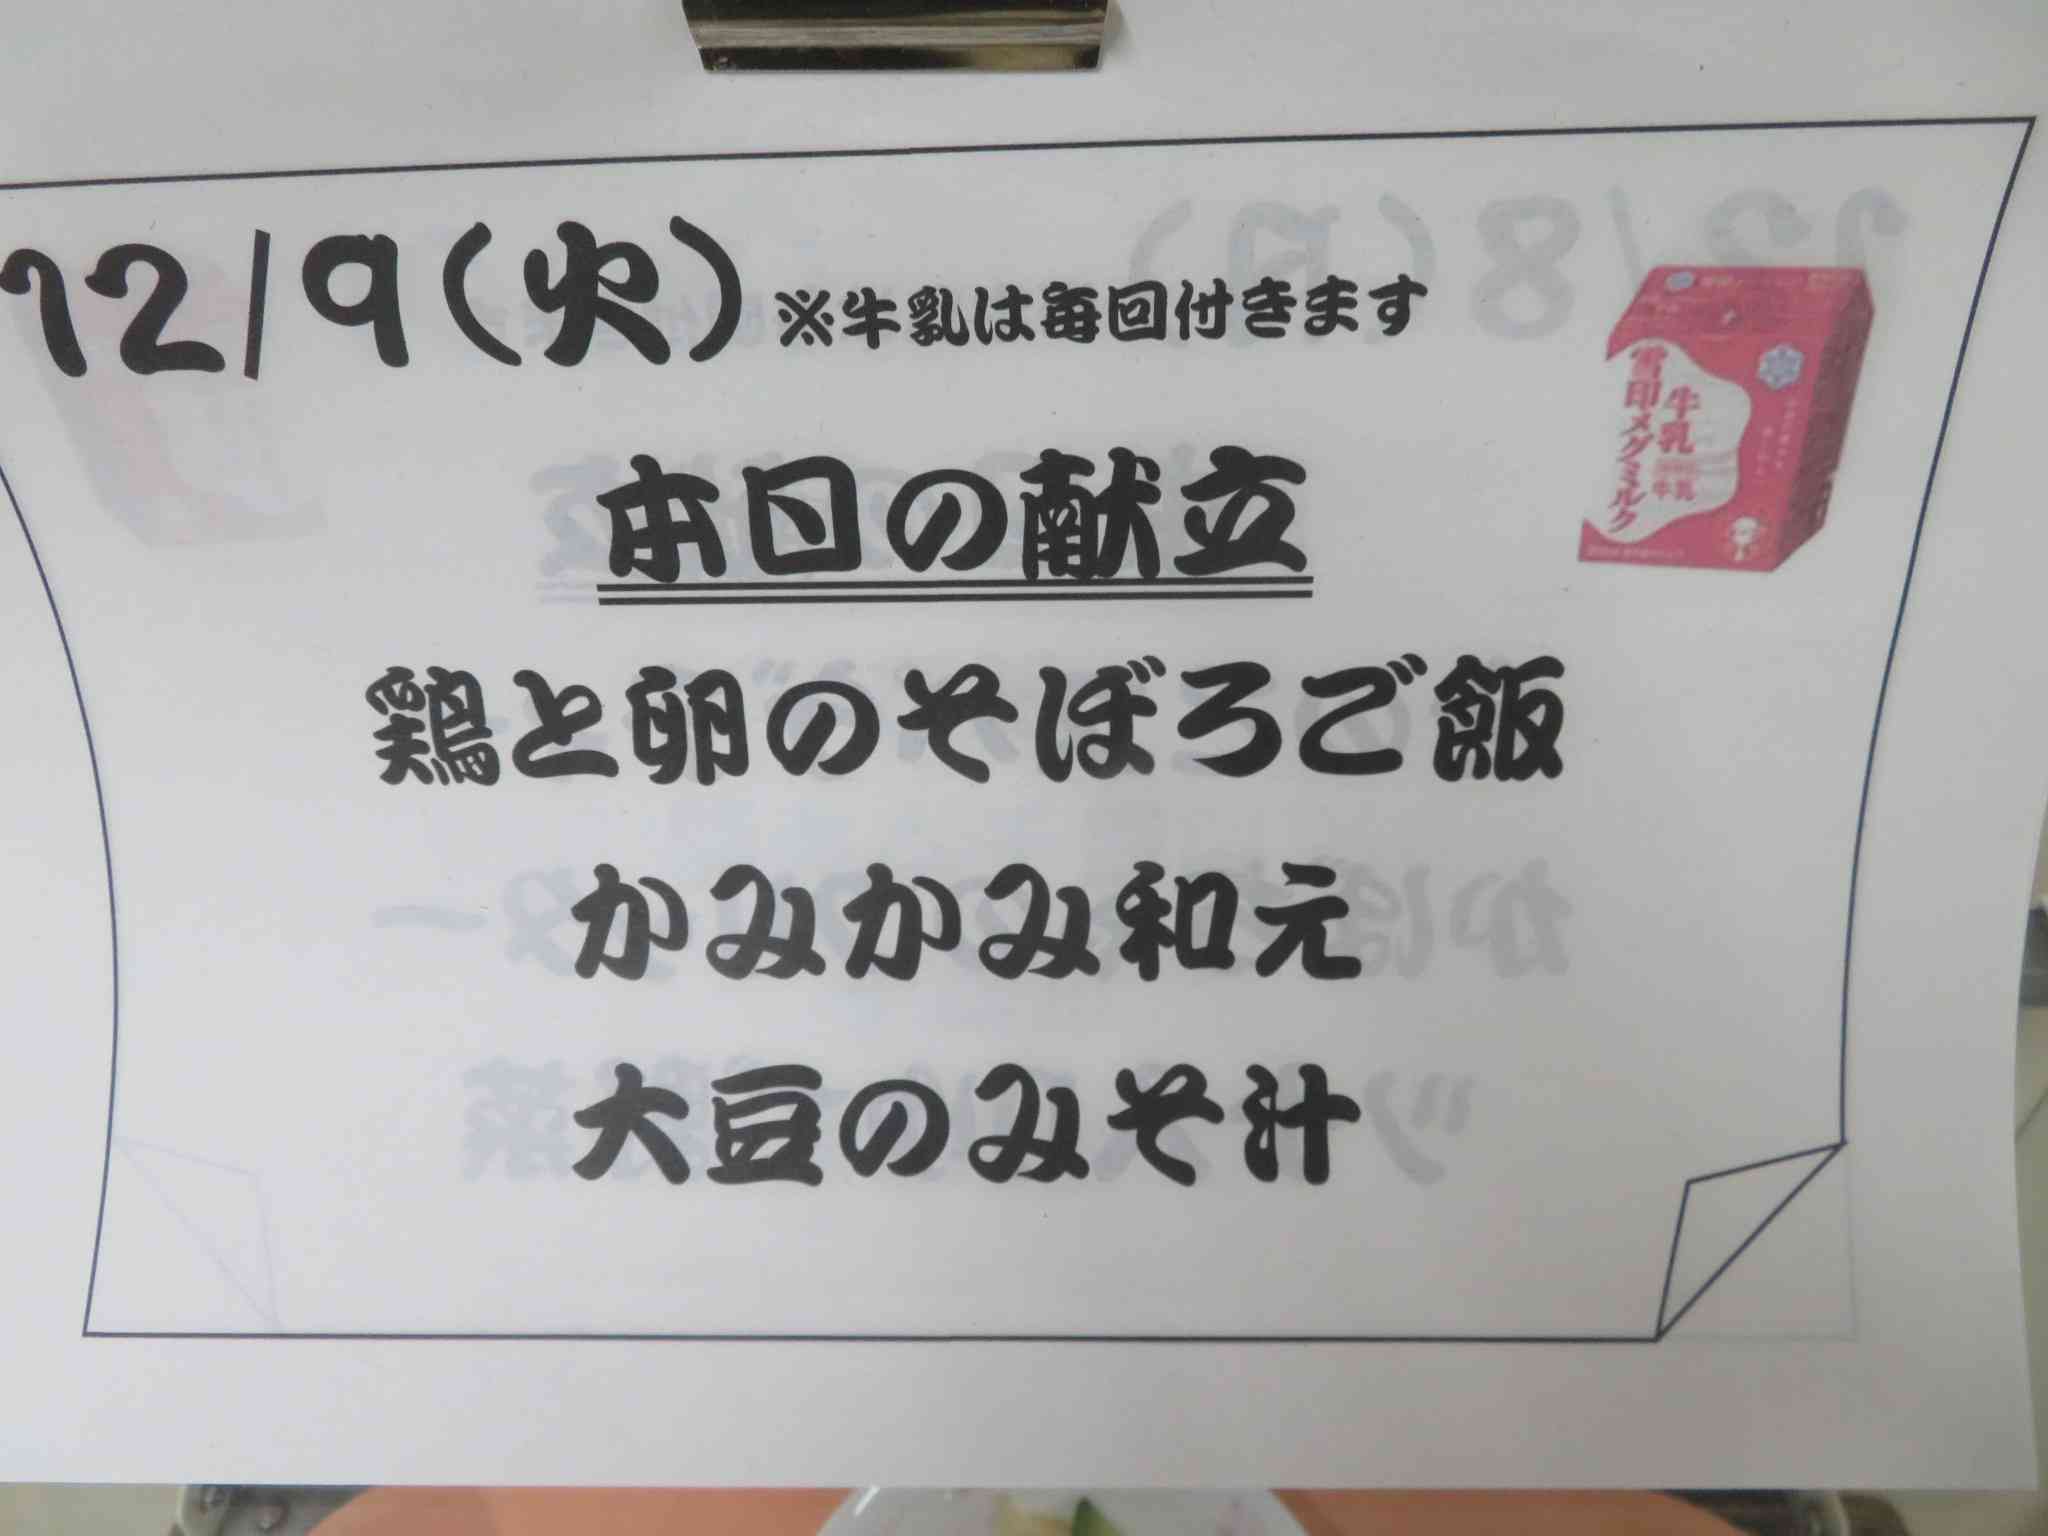 12/9(火)※牛乳は毎回付きます
本日の献立
鶏と卵のそぼろご飯
かみかみ和え
大豆のみそ汁
牛乳
雪印メグミルク
牛乳